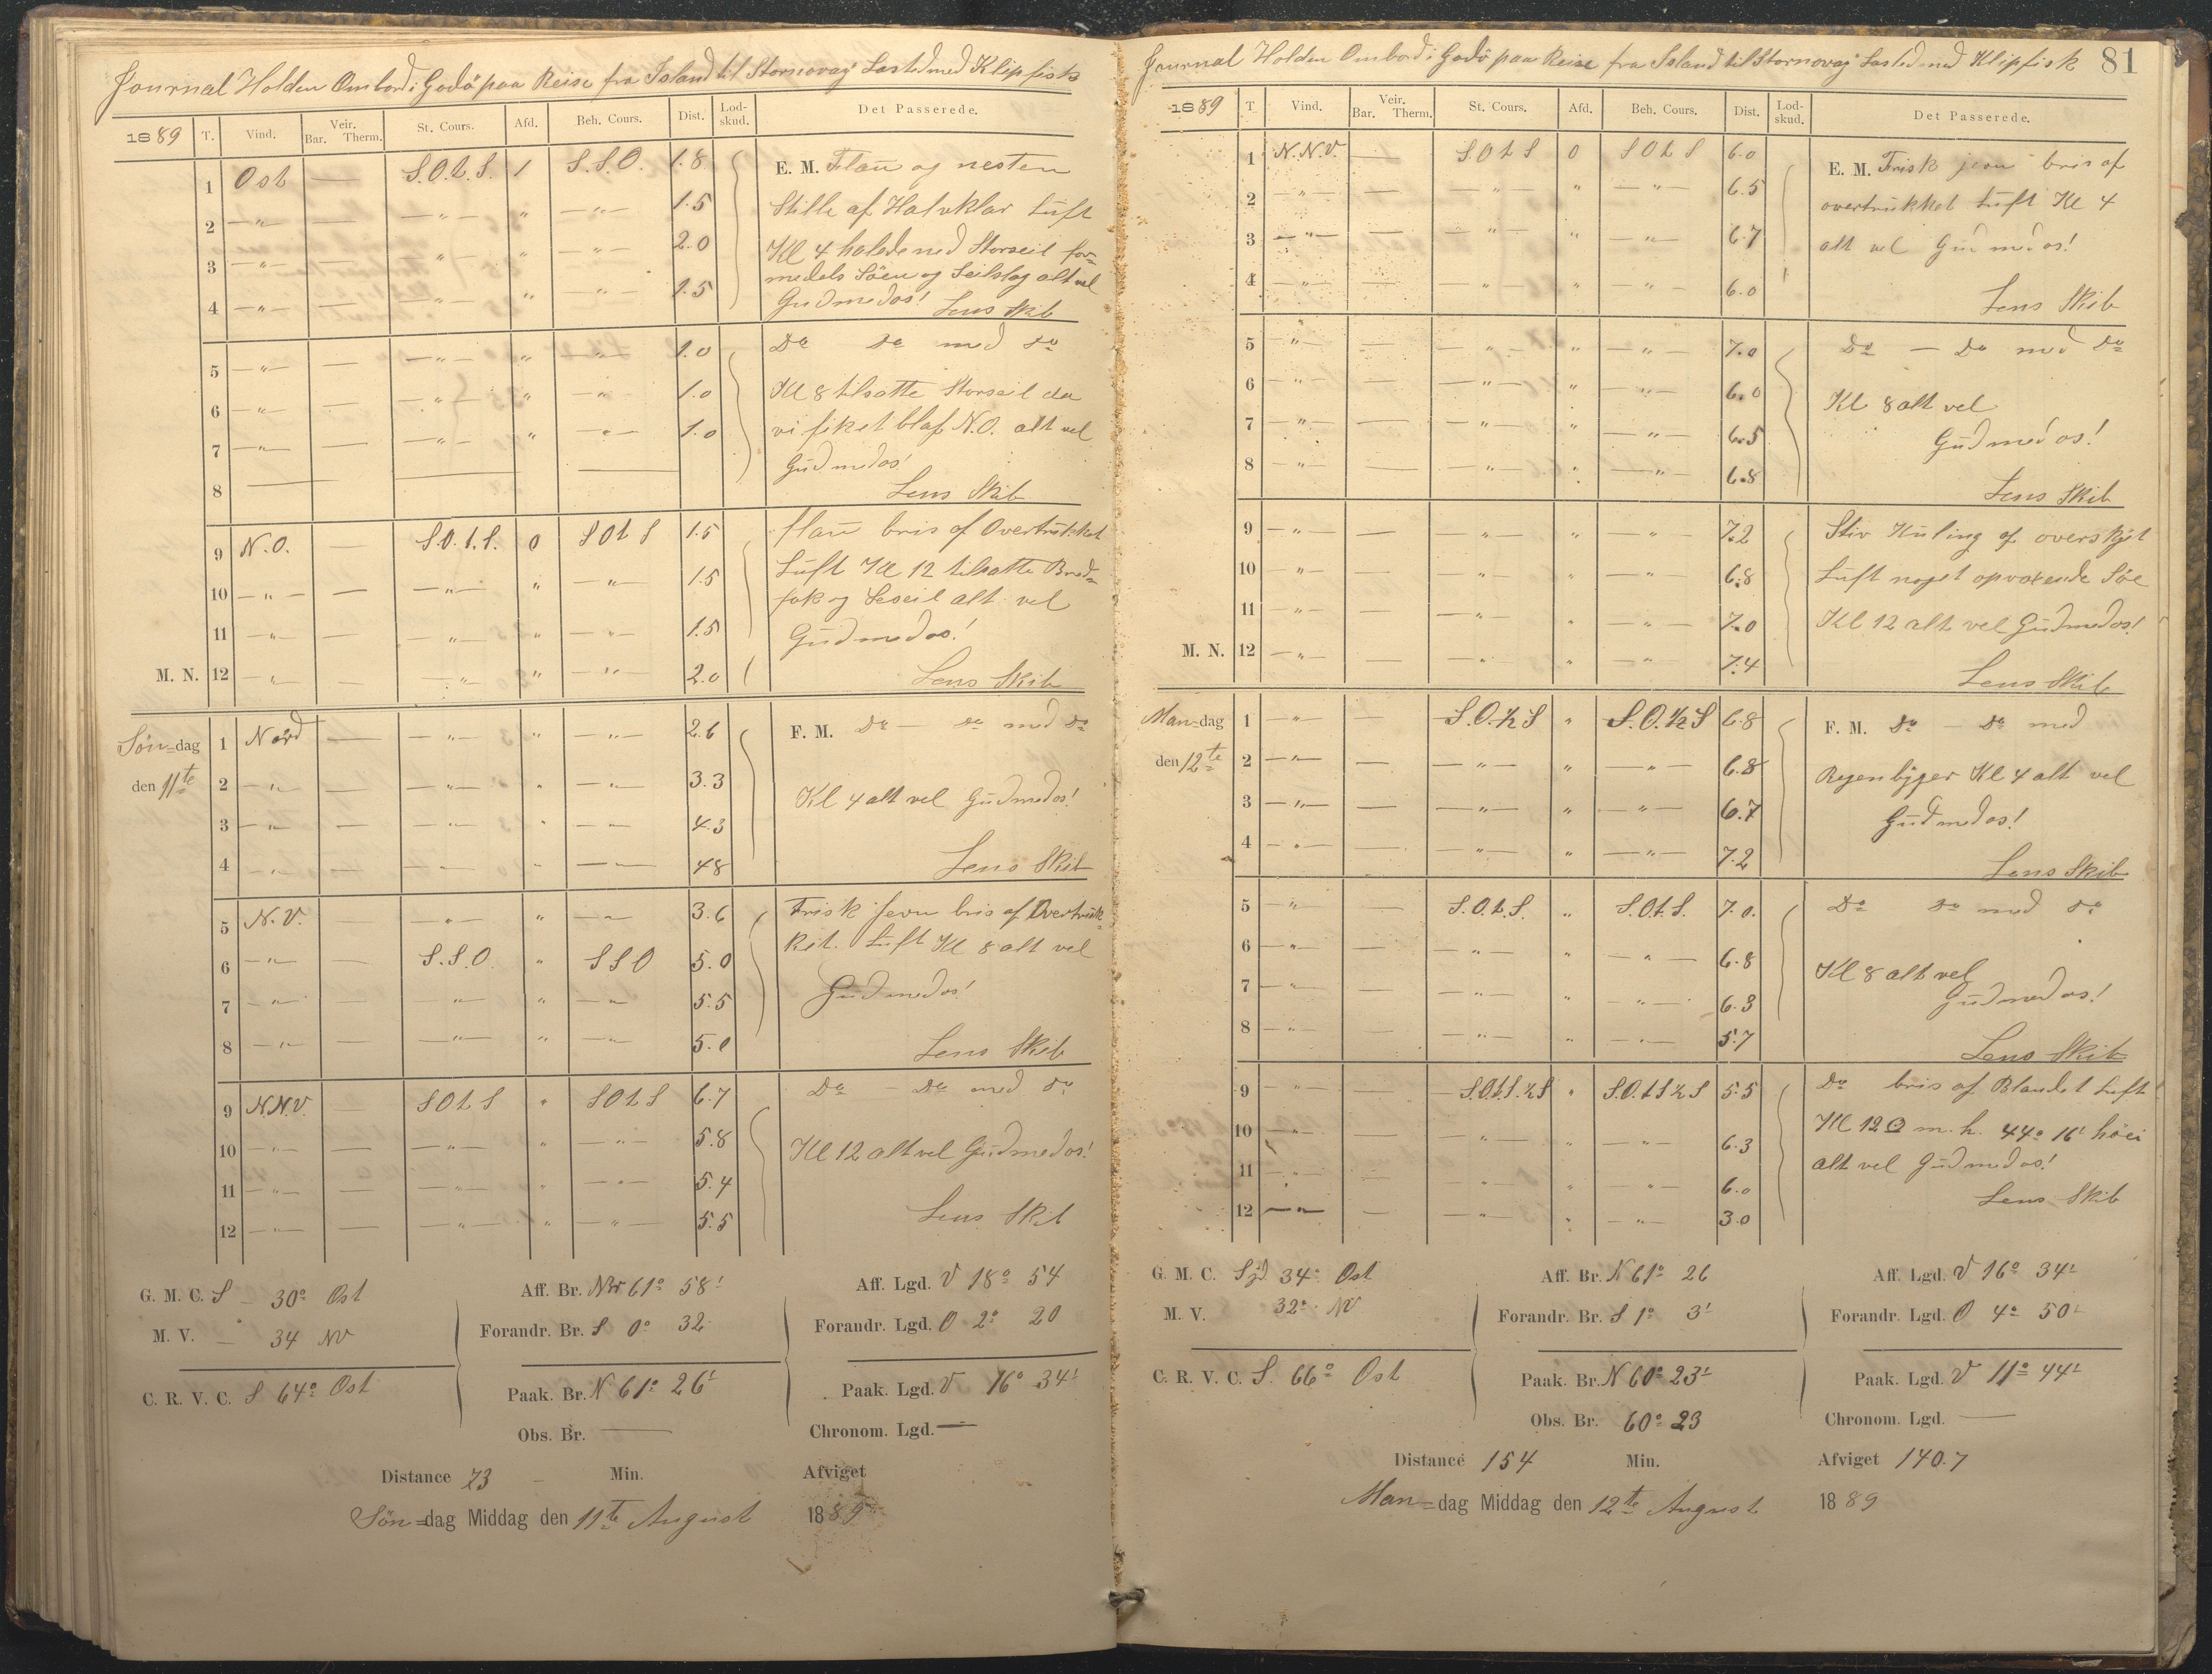 Journal Holden Ombord i Godö paa Reise fra Island til Stornovay Lasted med Klipfisk
1889 T. Vind. Veir. Bar. Therm. St. Cours. Afd. Beh. Cours. Dist. Lod-skud. Det Passerede.
1 Ost — S.O.t.S. 1 S.S.O. 1.8 E. M. Flau og nesten
2 —"— —"— " —"— 1.5 Stille af Halvklar Luft
3 —"— —"— " —"— 2.0 Kl 4 halede ned Storseil for=
medels Söen og Seilslag alt vel
4 —"— — —"— " —"— 1.5 Gud med os! Lens Skib
5 —"— — —"— " —"— 1.0 Do Do med do
6 —"— — —"— " —"— 1.0 Kl 8 tilsatte Storseil da
7 —"— — —"— " —"— 1.0 vi fik et blaf N.O. alt vel
Gud med os!
8 — — — Lens Skib
9 N.O. — S.O.t.S. 0 SOtS 1.5 flau bris af Overtrukket
10 —"— — —"— " —"— 1.5 Luft Kl 12 tilsatte Bred=
fok og Leseil alt vel
11 —"— — —"— " —"— 1.5 Gud med os!
M. N. 12 —"— — —"— " —"— 2.0 Lens Skib
Søn=dag 1 Nord — —"— " —"— 2.6 F. M. Do — do med do
den 11te 2 —"— — —"— " —"— 3.3 Kl 4 alt vel Gud med os!
3 —"— — —"— " —"— 4.3
4 —"— — —"— " —"— 48 Lens Skib
5 N.V. —"— " —"— 3.6 Frisk jevn bris af Overtruk=
6 —"— — S.S.O. " SSO 5.0 ket. Luft Kl 8 alt vel
7 —"— — —"— " —"— 5.5 Gud med os!
8 —"— — —"— " —"— 5.0 Lens Skib
9 NNV. — SOtS " SOtS 6.7 Do — Do med do
10 —"— — —"— " —"— 5.8 Kl 12 alt vel Gud med os!
11 —"— — —"— " —"— 5.4
12 —"— — —"— " —"— 5.5 Lens Skib
G. M. C. S — 30° Ost Aff. Br. Nr 61° 58' Aff. Lgd. V 18° 54
M. V. — 34 NV Forandr. Br. S 0° 32 Forandr. Lgd. O 2° 20
C. R. V. C. S 64° Ost Paak. Br. N 61° 26' Paak. Lgd. V 16° 34'
Obs. Br. — Chronom. Lgd. —
Distance 73 — Min. Afviget
Søn=dag Middag den 11te August 1889
Journal Holden Ombord i Godö paa Reise fra Island til Stornovay Lasted med Klipfisk 81
1889 T. Vind. Veir. Bar. Therm. St. Cours. Afd. Beh. Cours. Dist. Lod-skud. Det Passerede.
1 N.N.V. — SOtS 0 SOtS 6.0 E. M. Frisk jevn bris af
2 —"— — —"— " —"— 6.5 overtrukket Luft Kl 4
3 —"— — —"— " —"— 6.7 alt vel Gud med os!
4 —"— — —"— " —"— 6.0 Lens Skib
5 —"— — —"— " —"— 7.0 Do — Do med Do
6 —"— — —"— " —"— 6.0 Kl 8 alt vel
7 —"— — —"— " —"— 6.5 Gud med os!
8 —"— — —"— " —"— 6.8 Lens Skib
9 —"— — —"— " —"— 7.2 Stiv Kuling af overskyet
10 —"— — —"— " —"— 6.8 Luft noget opvoxende Söe
11 —"— — —"— " —"— 7.0 Kl 12 alt vel Gud med os!
M. N. 12 —"— — —"— " —"— 7.4 Lens Skib
Man=dag 1 —"— — S.O.½S " S.O.½S 6.8 F. M. Do — Do med
den 12te 2 —"— — —"— " —"— 6.8 Regenbyger Kl 4 alt vel
3 —"— — —"— " —"— 6.7 Gud med os!
4 —"— — —"— " —"— 7.2 Lens Skib
5 —"— — S.O.t.S. " S.O.t.S. 7.0. Do do med do
6 —"— — —"— " —"— 6.8 Kl 8 alt vel
7 —"— — —"— " —"— 6.3 Gud med os!
8 —"— — —"— " —"— 5.7 Lens Skib
9 —"— — S.O.t.S.½S " S.O.tS½S 5.5 Do bris af Blandet Luft
10 —"— — —"— " —"— 6.3 Kl 12 ☉ m.h. 44° 16' höi
11 —"— — —"— " —"— 6.0 alt vel Gud med os!
12 —"— — —"— " —"— 3.0 Lens Skib
G. M. C. Syd 34° Ost Aff. Br. N 61° 26 Aff. Lgd. V 16° 34'
M. V. 32° NV Forandr. Br. S 1° 3' Forandr. Lgd. O 4° 50'
C. R. V. C. S. 66° Ost Paak. Br. N 60° 23' Paak. Lgd. V 11° 44'
Obs. Br. 60° 23 Chronom. Lgd. —
Distance 154 Min. Afviget 140.7
Man=dag Middag den 12te August 1889